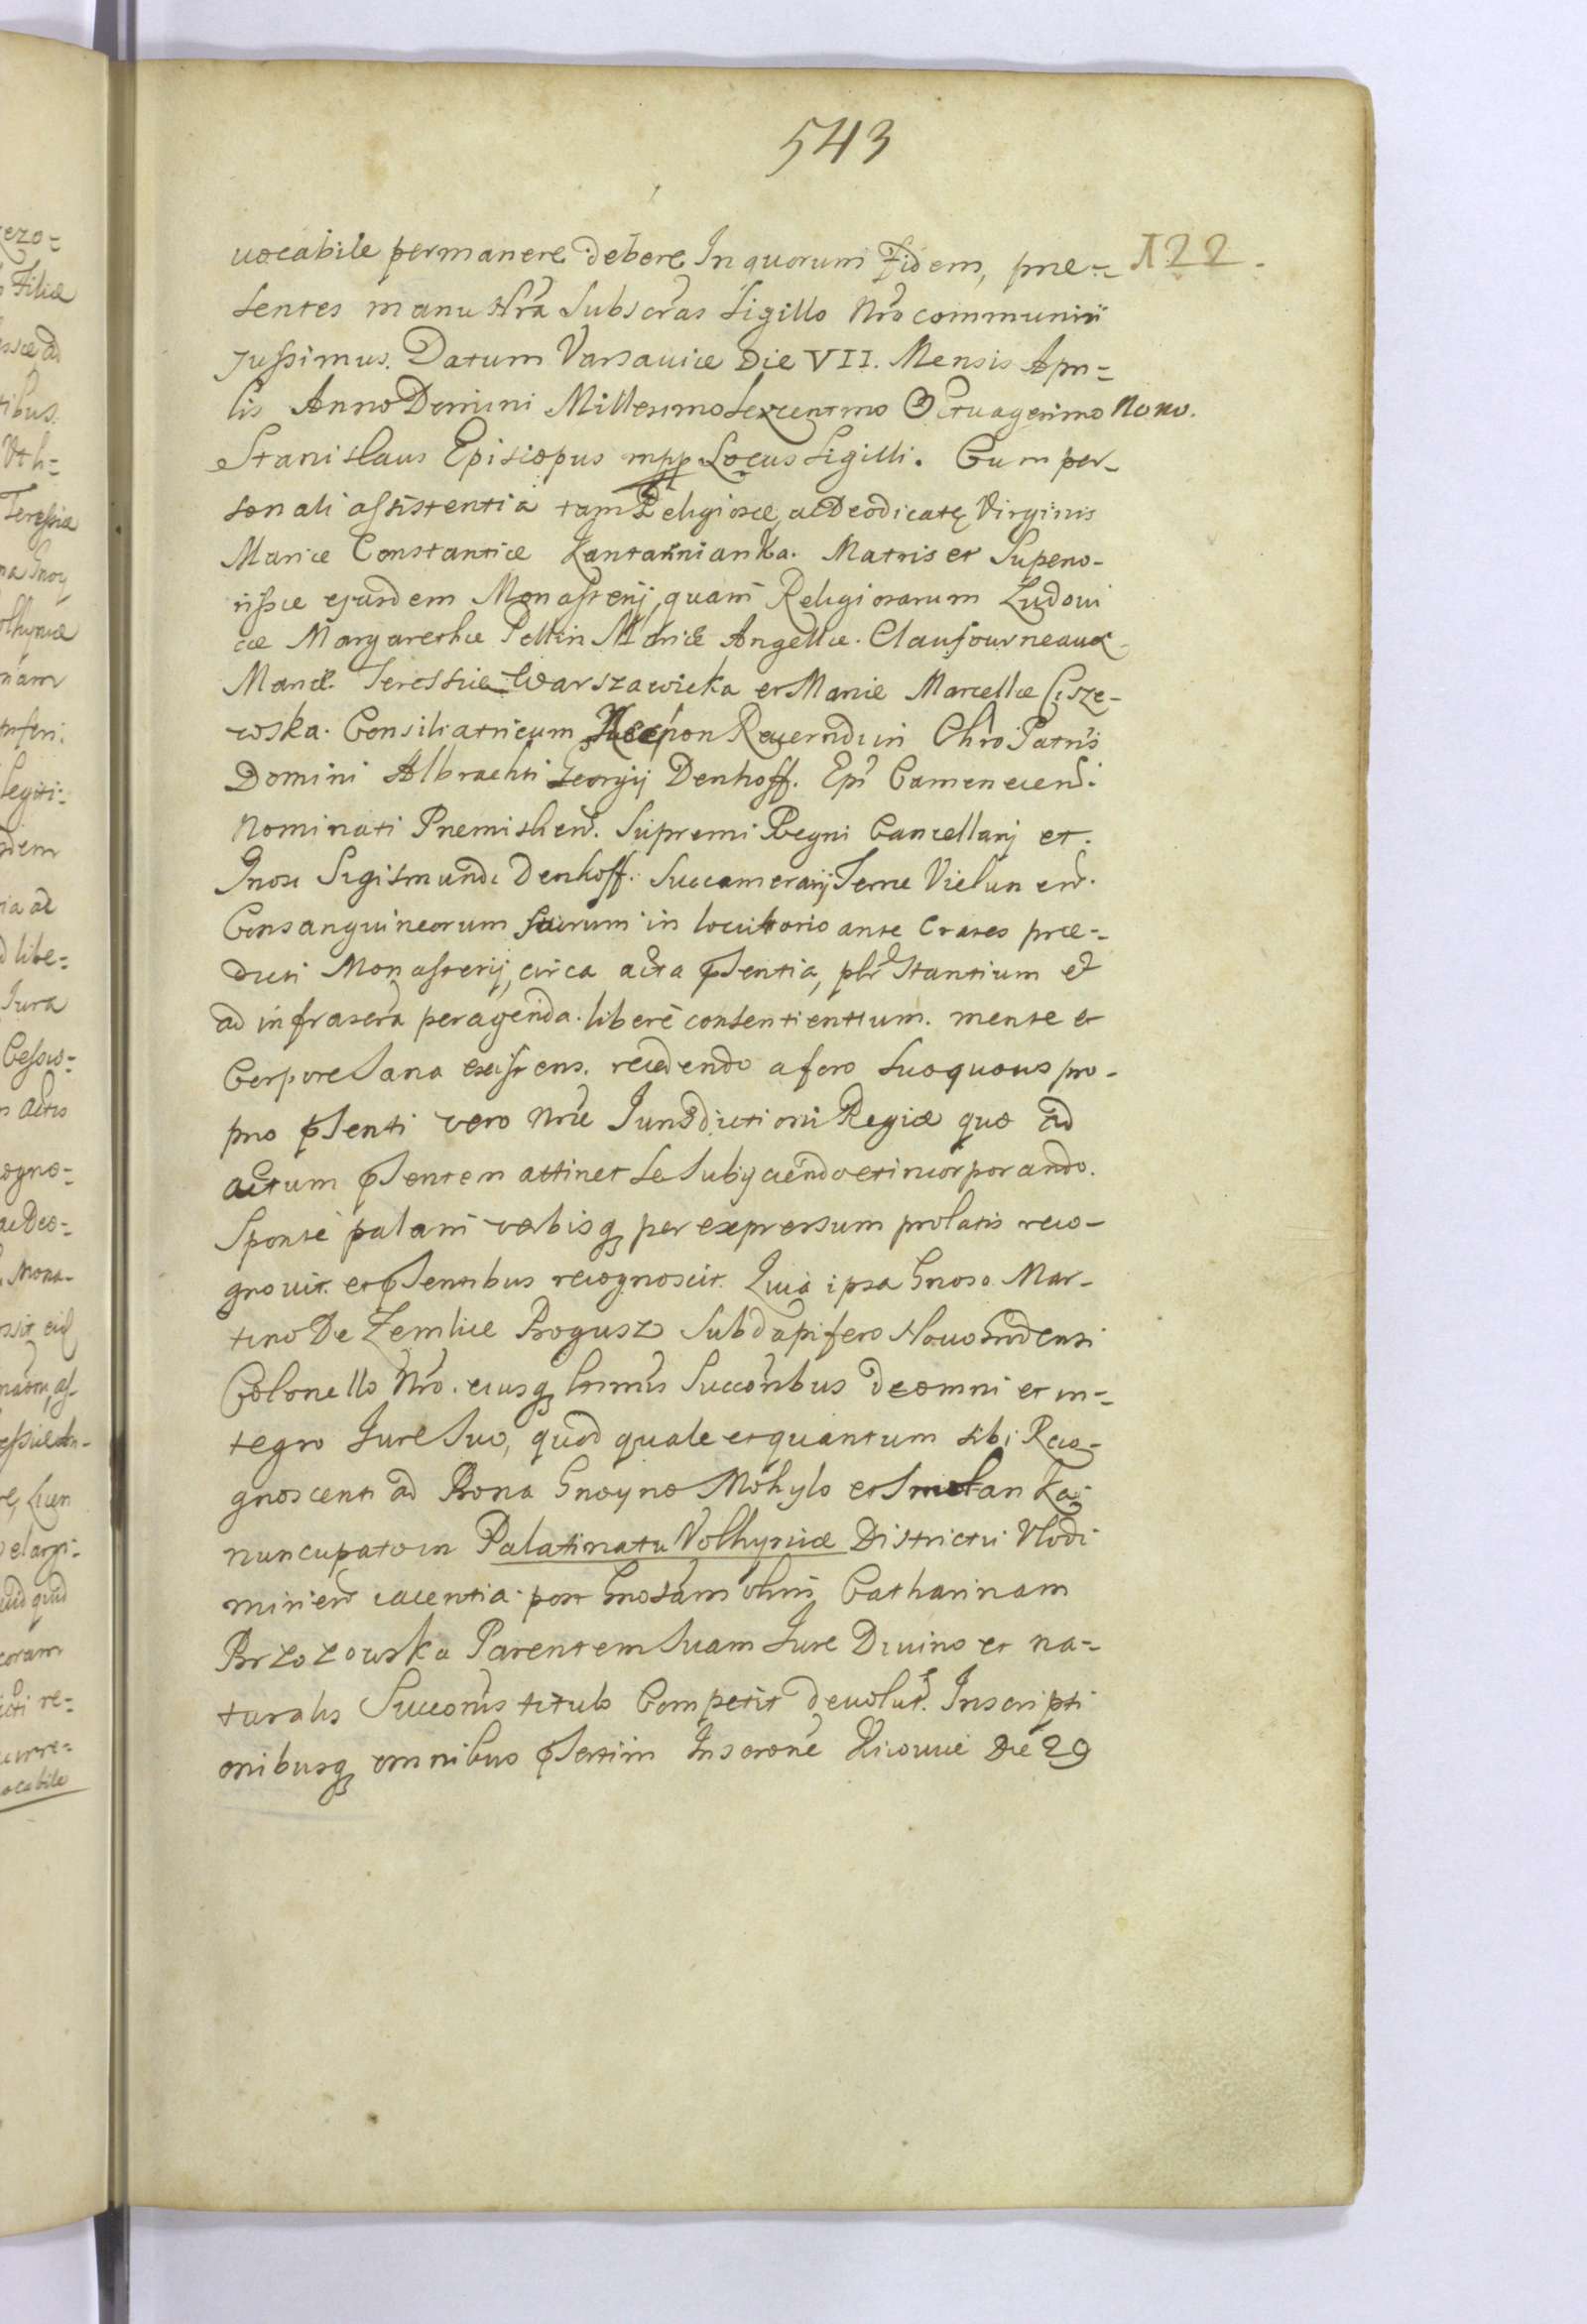 543
122
uocabile permanere debere In quorum Fidem, prae-
sentes manu Nrã Subscrãs Sigillo Nrõ communiri
Jussimus. Datum Varsauiæ Die VII. Mensis Apri-
lis Anno Domini Millesimo Sexcentmo Octuagesimo Nono.
Stanislaus Episcopus mpp Locus Sigilli. Cum per-
sonali assistentia tam Religiosæ, ac Deodicatę Virginis
Mariæ Constantiæ Matris et Superio-
rissæ ejusdem Monasterij, quam Religiosarum Ludoui
cæ Margarethæ Pettin Mariæ Angellæ. Claufourneaux
Mariæ Teressiæ Warszawicka et Mariæ Marcellæ Cisze-
wska. Consiliatricum Reuerndi in Chrõ Patris
Domini Albrachti Georgij Denhoff. Epĩ Camenecens.
Nominati Premislien. Supremi Regni Cancellarij et.
Gnosi Sigismundi Denhoff. Succamerarij Terræ Vielunen.
Consanguineorum Suorum in locutorio ante Crates præ-
dicti Monasterij, circa acta pSentia, plr Stantium et
ad infrascrã peragenda. liberè consentientium. mente et
Corpore Sana existens. recedendo a foro Suo quouis pro-
prio pSenti vero Nræ Jurisdictioni Regiæ quo ad
actum pSentem attinet Se Subyciendo et incorporando.
Sponte palam verbisq per expressum prolatis reco-
gnouit. et pSentibus recognoscit. Quia ipsa Gnoso Mar-
tino De Zemlice Bogusz Subdapifero Nouogrodensi
Colonello Nrõ. eiusq Lrimis Succoribus de omni et in-
tegro Jure Suo, quod quale et quantum sibi Reco-
gnoscenti ad Bona Gnoyno Mohylo et Smolanka
nuncupato in Palatinatu Volhyniæ Districtu Vlodi
mirien iacentia. post Gnosam olim Catharinam
Brzozowska Parentem Suam Jure Diuino et na-
turalis Succoris titulo Competit deuolut. Inscripti
onibusq omnibus pSertim Inscrone Kiouiæ Die 29